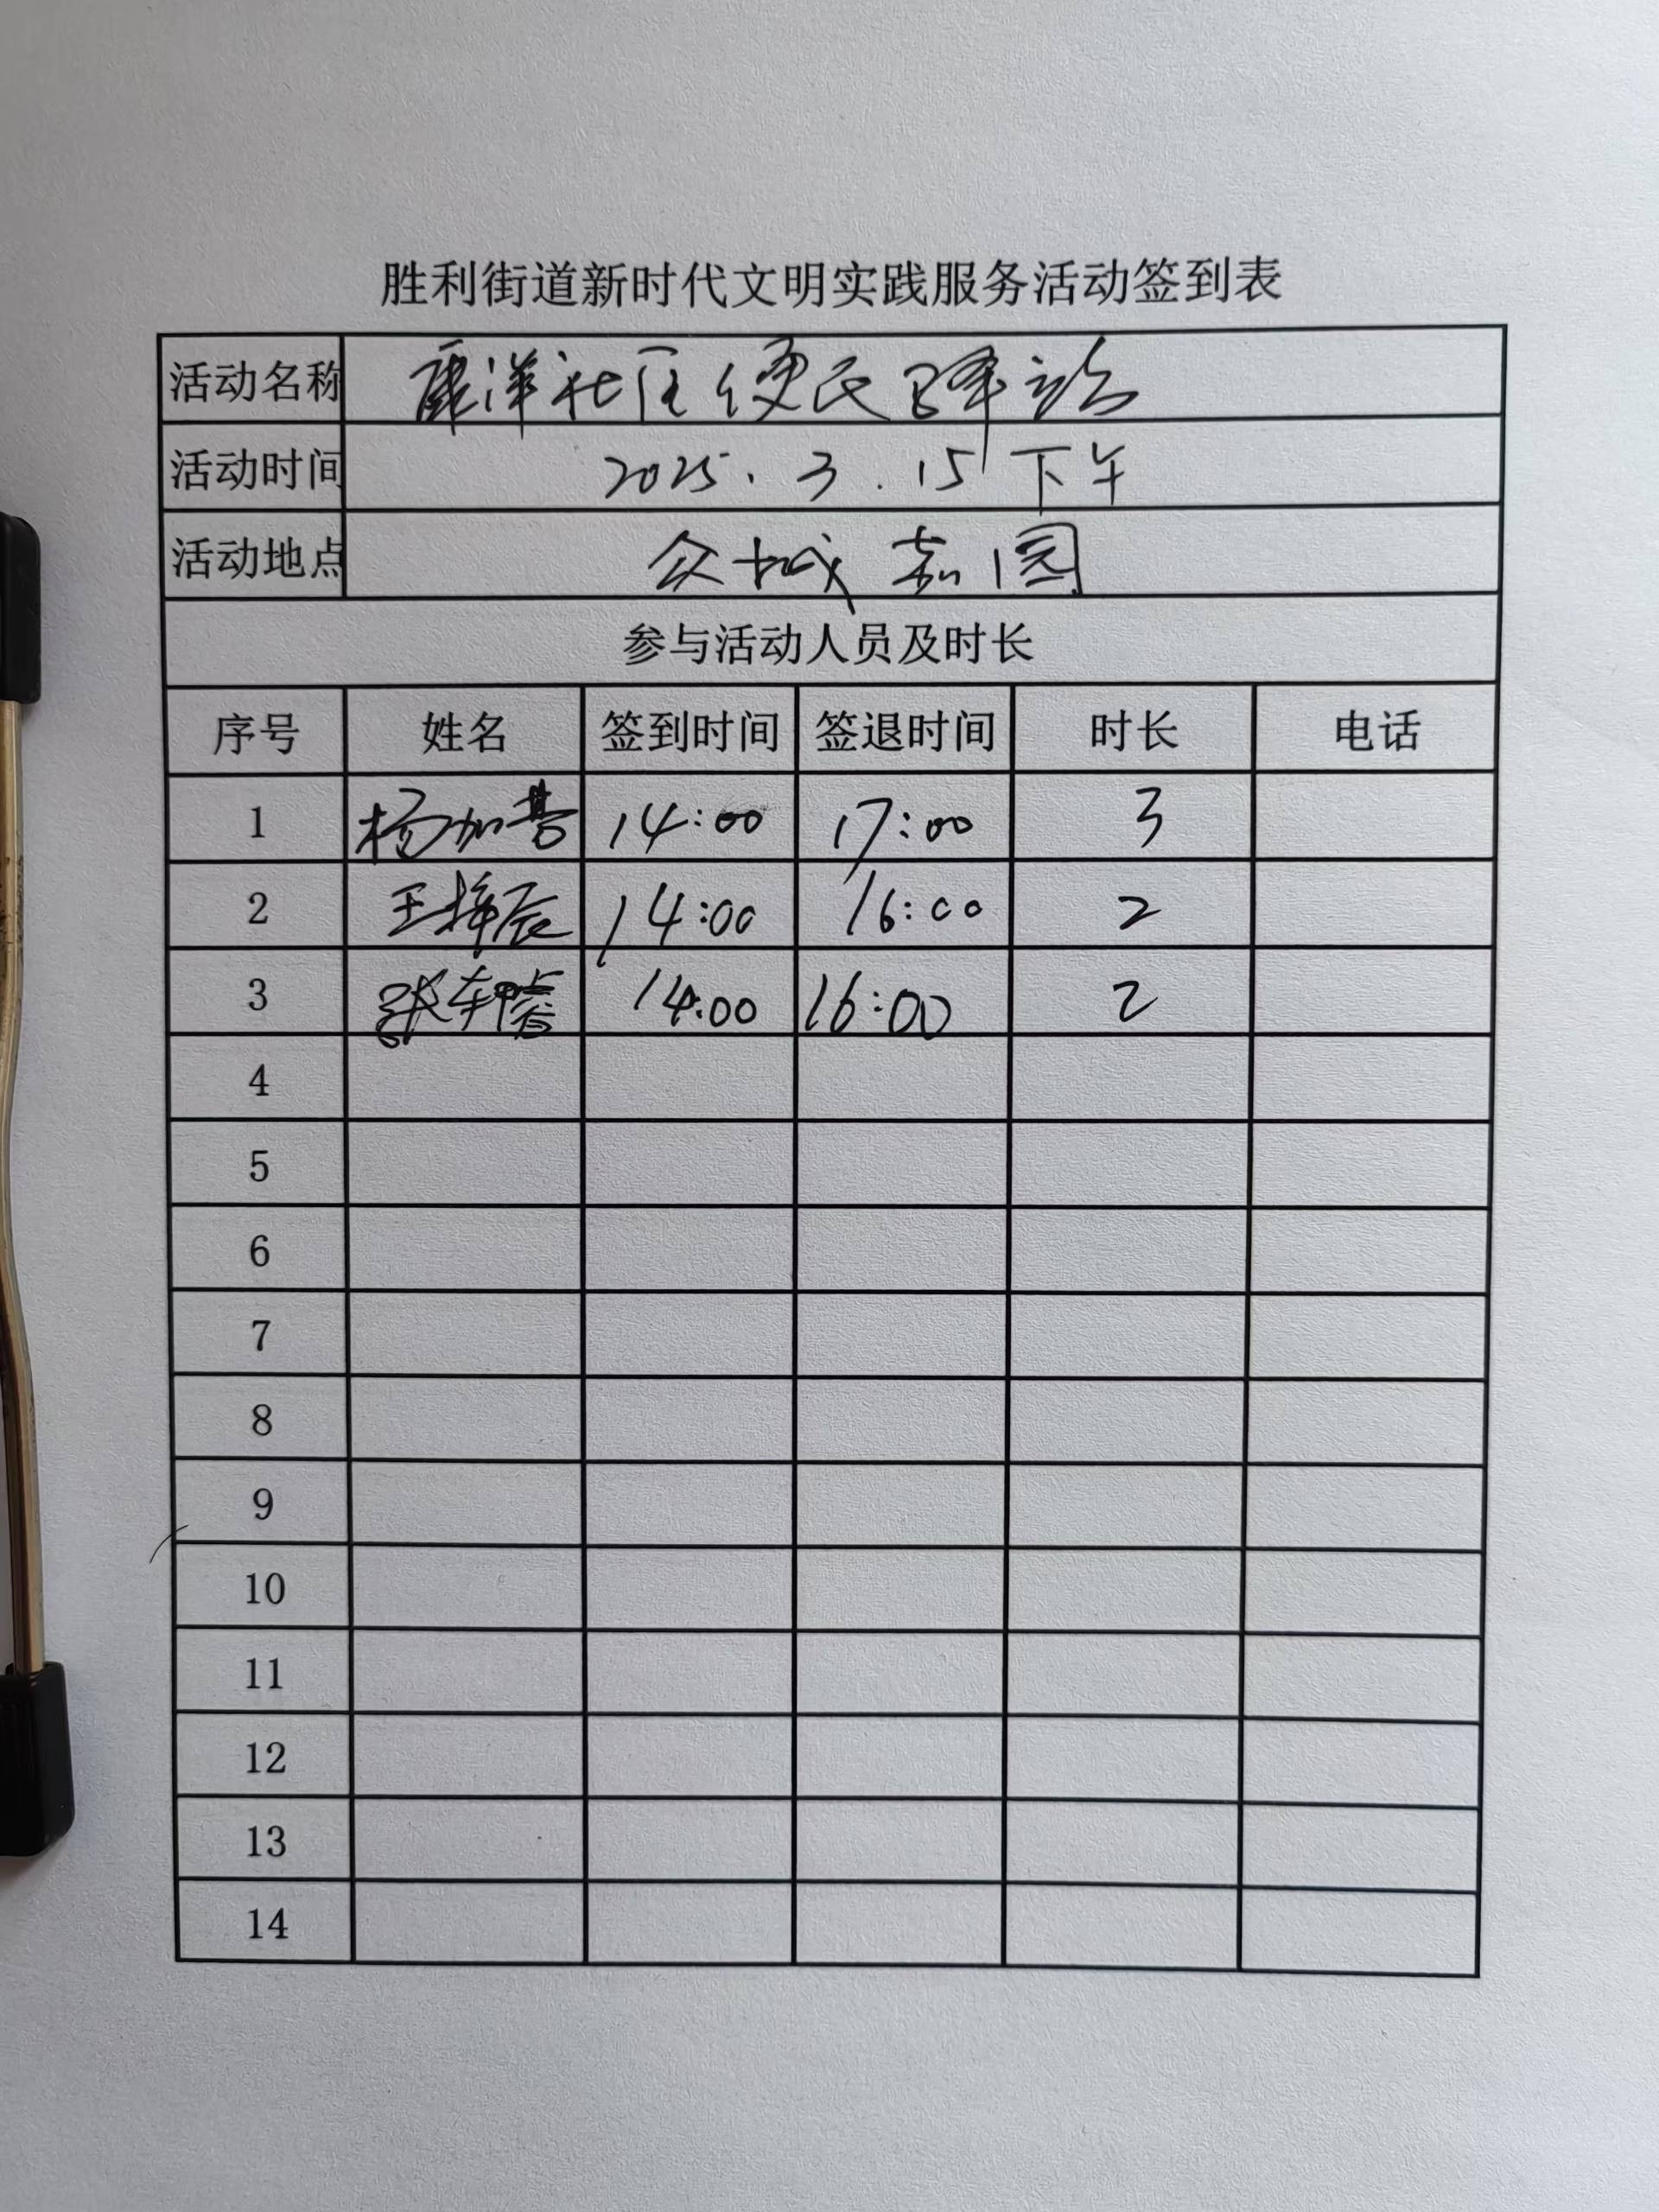 胜利街道新时代文明实践服务活动签到表
活动名称 康洋社区便民驿站
活动时间 2025.3.15 下午
活动地点 众城嘉园
参与活动人员及时长
序号 姓名 签到时间 签退时间 时长 电话
1 杨加 14:00 17:00 3
2 王梓辰 14:00 16:00 2
3 张轩睿 14:00 16:00 2
4
5
6
7
8
9
10
11
12
13
14